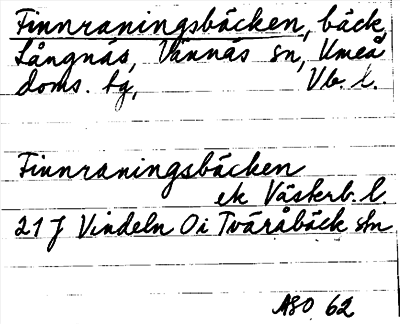 Finnraningsbäcken, bäck,
Långnäs, Vännäs sn, Umeå
doms. tg, Vb. l.
Finnraningsbäcken
ek Västerb. l.
21 J Vindeln 0i Tväråbäck stn
ASO 62